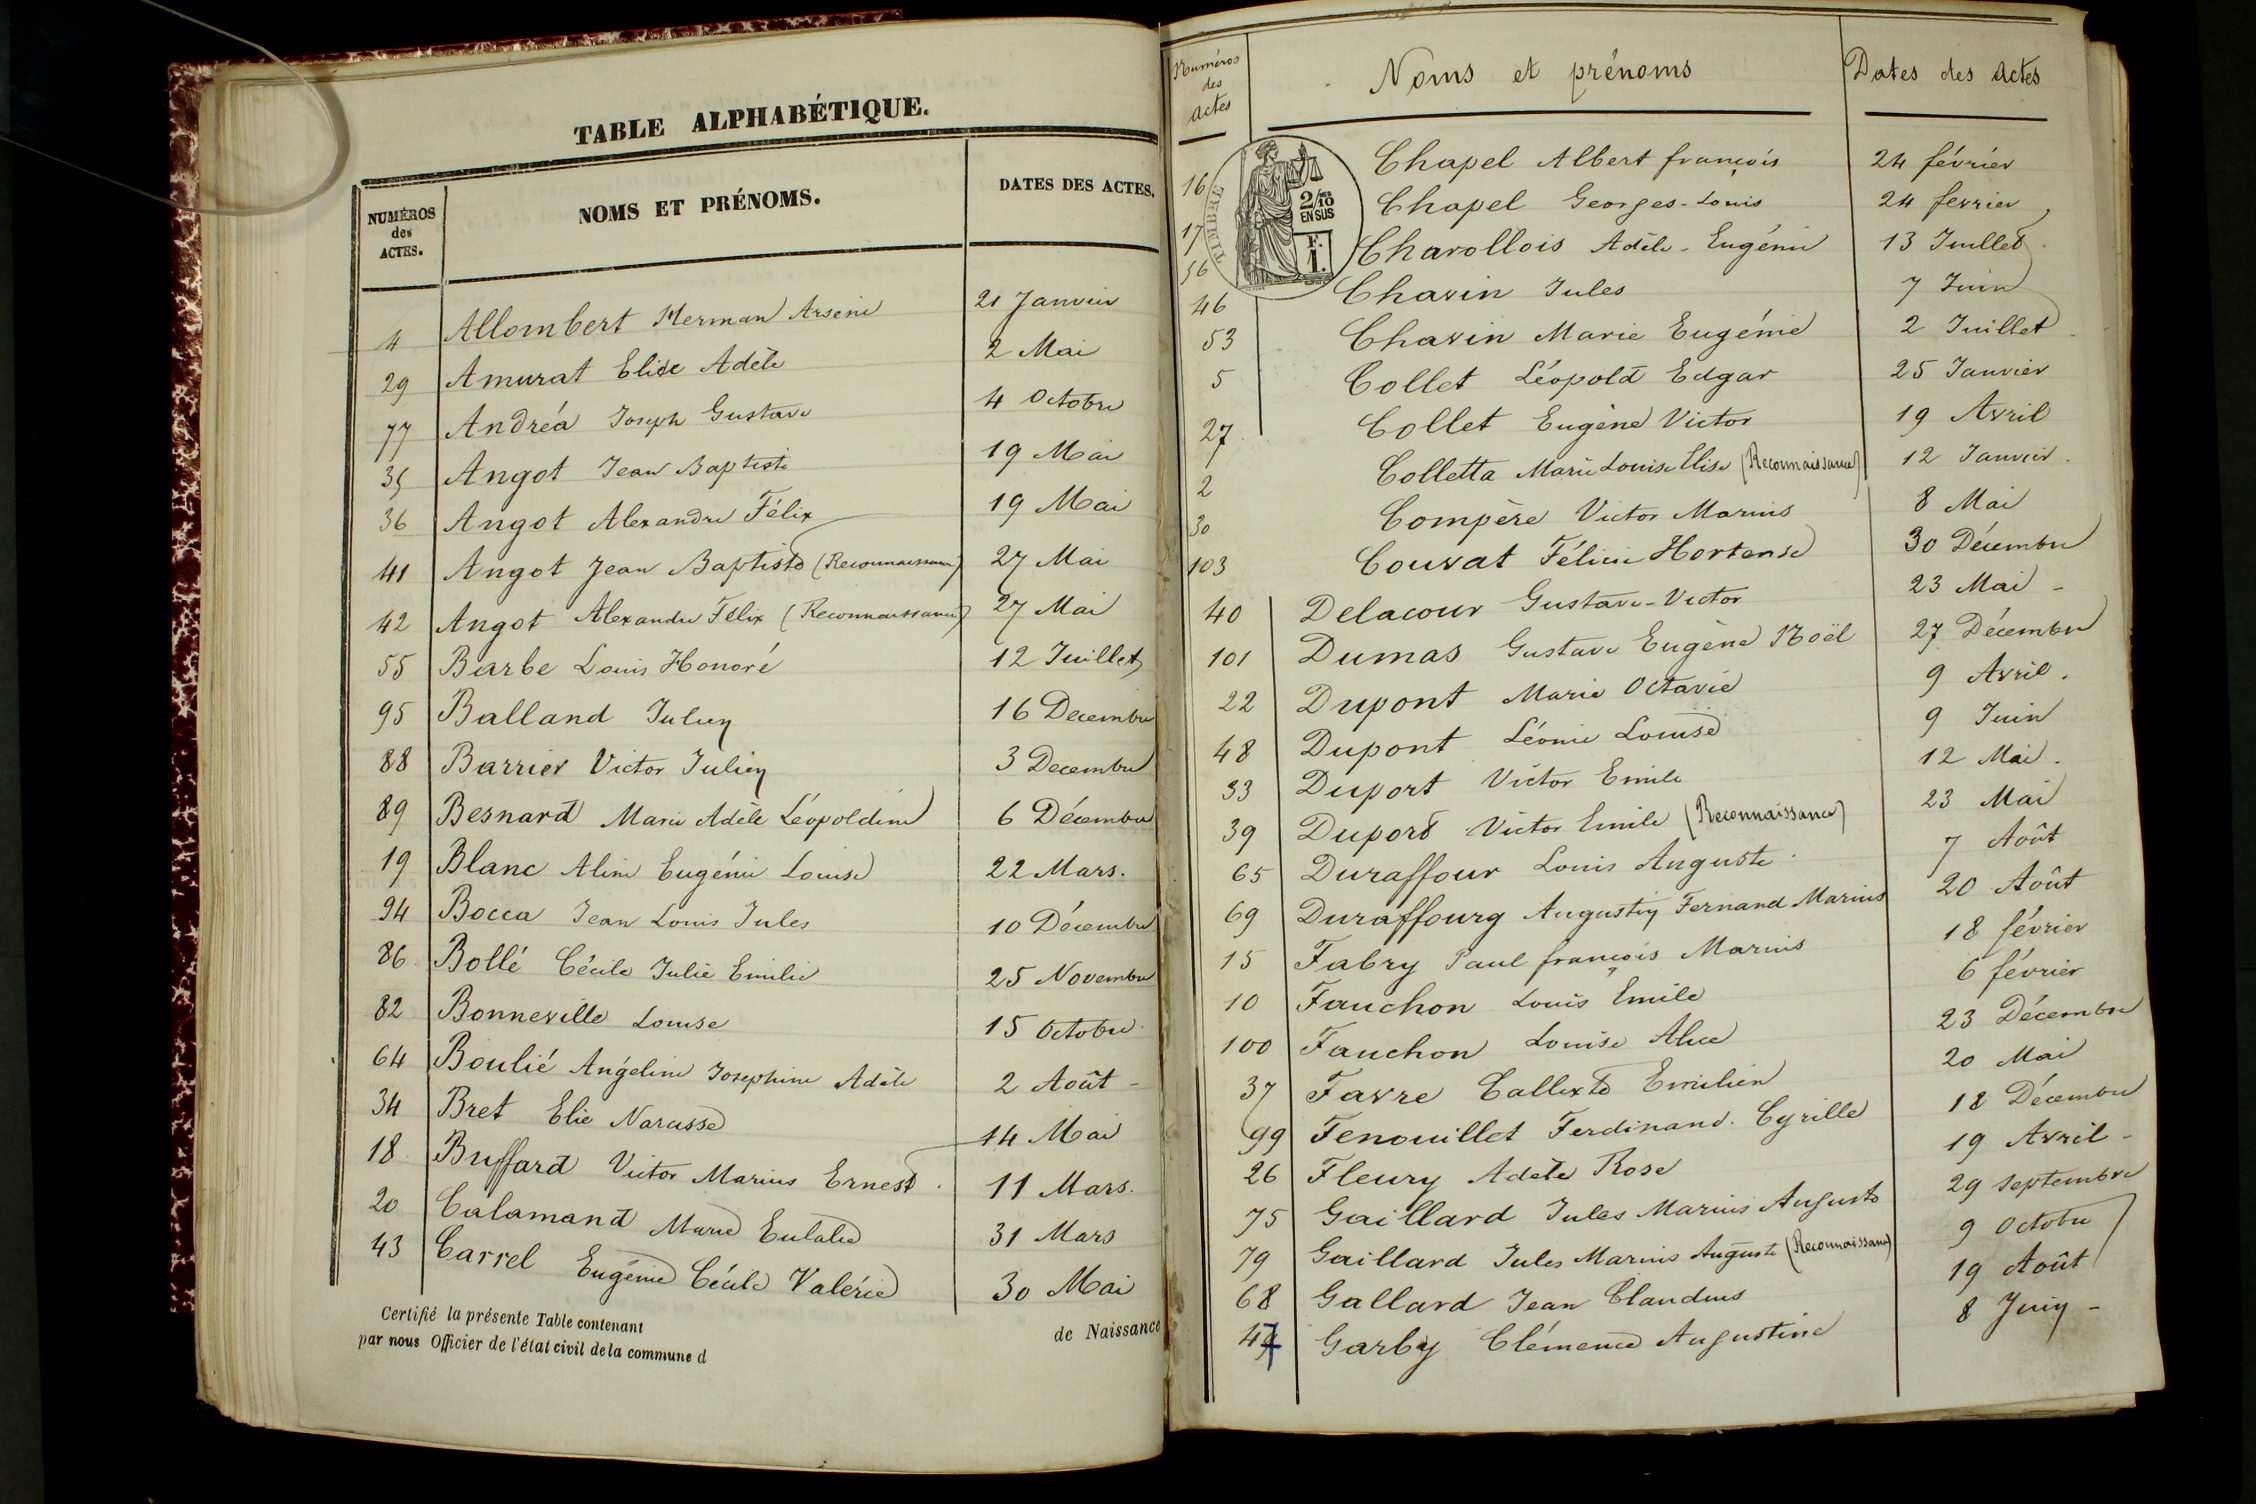 TABLE ALPHABÉTIQUE.
NUMÉROS des ACTES. NOMS ET PRÉNOMS. DATES DES ACTES.
4 Allombert Herman Arsène 21 Janvier
29 Amurat Elise Adèle 2 Mai
77 Andréa Joseph Gustave 4 Octobre
35 Angot Jean Baptiste 19 Mai
36 Angot Alexandre Félix 19 Mai
41 Angot Jean Baptiste (Reconnaissance) 27 Mai
42 Angot Alexandre Félix (Reconnaissance) 27 Mai
55 Barbe Louis Honoré 12 Juillet
95 Balland Julien 16 Decembre
88 Barrier Victor Julien 3 Decembre
89 Besnard Marie Adèle Léopoldine 6 Décembre
19 Blanc Aline Eugénie Louise 22 Mars.
94 Bocca Jean Louis Jules 10 Décembre
86 Bollé Cécile Julie Emilie 25 Novembre
82 Bonneville Louise 15 Octobre
64 Boulié Angéline Josephine Adèle 2 Août -
34 Bret Elie Narcisse 14 Mai
18 Buffard Victor Marius Ernest 11 Mars.
20 Calamand Marie Eulalie 31 Mars
43 Carrel Eugénie Cécile Valérie 30 Mai
Certifié la présente Table contenant de Naissance
par nous Officier de l'état civil de la commune d
Numéros des actes Noms et prénoms Dates des actes
TIMBRE 2/10 EN SUS F. 1.
16 Chapel Albert françois 24 février
17 Chapel Georges-Louis 24 fevrier
56 Charollois Adèle-Eugénie 13 Juillet
46 Chavin Jules 7 Juin
53 Chavin Marie Eugénie 2 Juillet
5 Collet Léopold Edgar 25 Janvier
27 Collet Eugène Victor 19 Avril
2 Colletta Marie Louise Elise (Reconnaissance) 12 Janvier.
30 Compère Victor Marius 8 Mai
103 Couvat Félicie Hortense 30 Décembre
40 Delacour Gustave-Victor 23 Mai -
101 Dumas Gustave Eugène Noël 27 Décembre
22 Dupont Marie Octavie 9 Avril.
48 Dupont Léonie Louise 9 Juin
33 Duport Victor Emile 12 Mai.
39 Duport Victor Emile (Reconnaissance) 23 Mai
65 Duraffour Louis Auguste 7 Août
69 Duraffourg Augustin Fernand Marius 20 Août
15 Fabry Paul françois Marius 18 février
10 Fauchon Louis Emile 6 février
100 Fauchon Louise Alice 23 Décembre
37 Favre Callixte Emilien 20 Mai
99 Fenouillet Ferdinand. Cyrille 18 Décembre
26 Fleury Adèle Rose 19 Avril -
75 Gaillard Jules Marius Auguste 29 Septembre
79 Gaillard Jules Marius Auguste (Reconnaissance) 9 Octobre
68 Gallard Jean Claudius 19 Août
47 Garby Clémence Augustine 8 Juin -